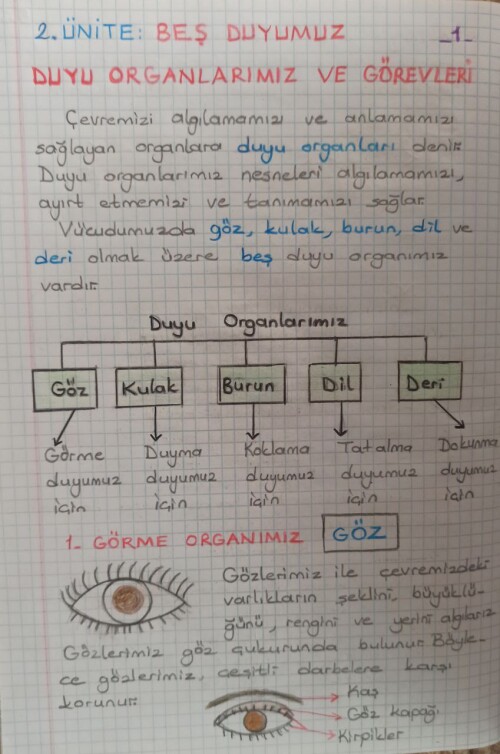 2. ÜNİTE: BEŞ DUYUMUZ
_1_
DUYU ORGANLARIMIZ VE GÖREVLERİ
Çevremizi algılamamızı ve anlamamızı
sağlayan organlara duyu organları denir.
Duyu organlarımız nesneleri algılamamızı,
ayırt etmemizi ve tanımamızı sağlar.
Vücudumuzda göz, kulak, burun, dil ve
deri olmak üzere beş duyu organımız
vardır.
Duyu Organlarımız
Göz Kulak Burun Dil Deri
Görme Duyma Koklama Tatalma Dokunma
duyumuz duyumuz duyumuz duyumuz duyumuz
için için için için için
1_ GÖRME ORGANIMIZ GÖZ
Gözlerimiz ile çevremizdeki
varlıkların şeklini, büyüklü-
ğünü, rengini ve yerini algılarız
Gözlerimiz göz çukurunda bulunur. Böyle-
ce gözlerimiz, çeşitli darbelere karşı
korunur.
Kaş
Göz kapağı
Kirpikler